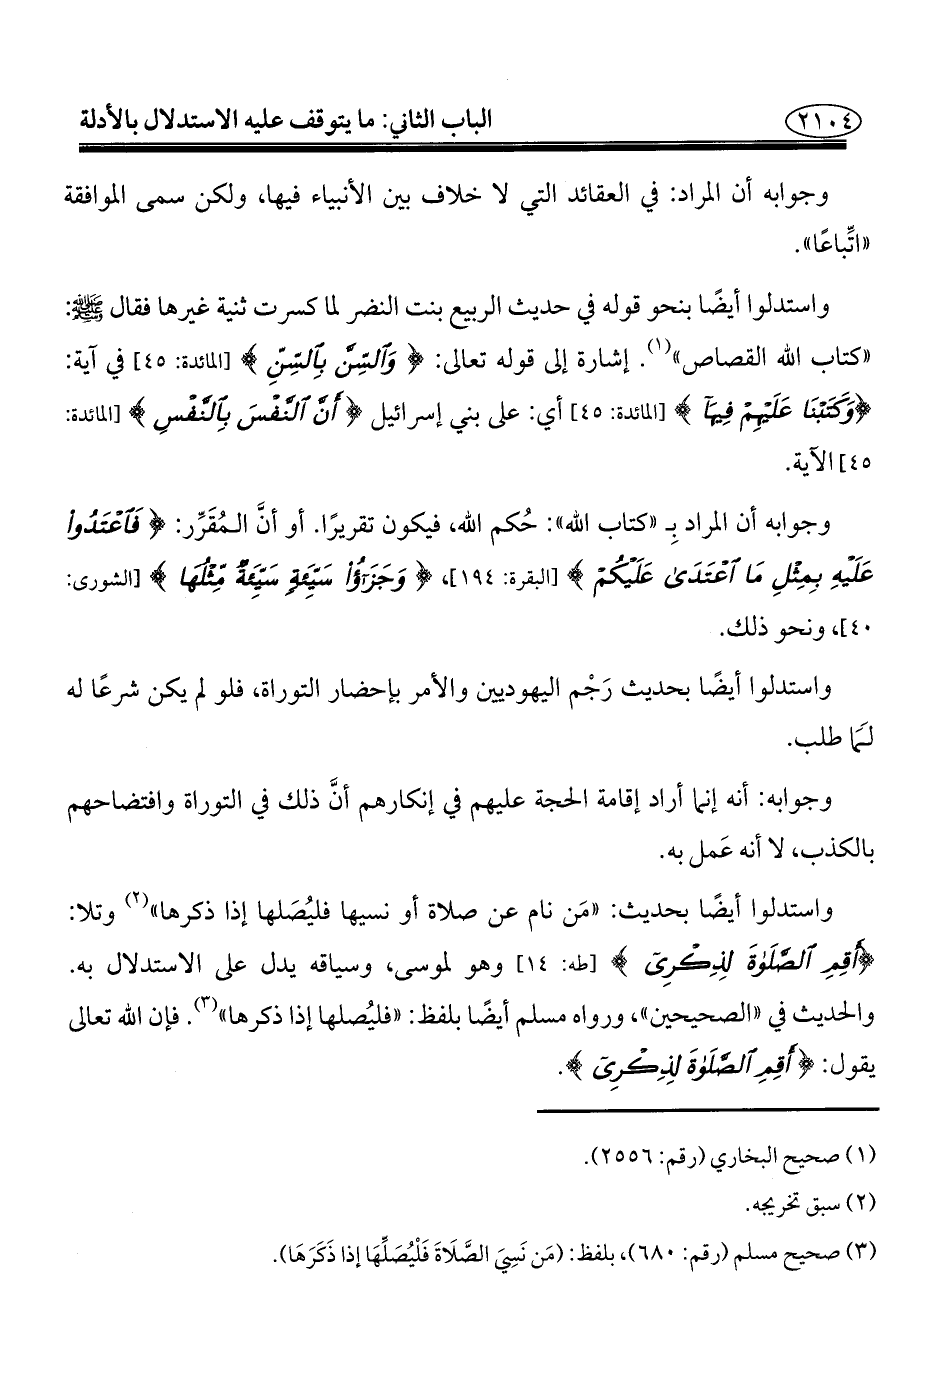 ٢١٠٤ الباب الثاني: ما يتوقف عليه الاستدلال بالأدلة
وجوابه أن المراد: في العقائد التي لا خلاف بين الأنبياء فيها، ولكن سمى الموافقة
«اتِّباعًا».
واستدلوا أيضًا بنحو قوله في حديث الربيع بنت النضر لما كسرت ثنية غيرها فقال ﷺ:
«كتاب الله القصاص»(١). إشارة إلى قوله تعالى: ﴿ وَٱلسِّنَّ بِٱلسِّنِّ ﴾ [المائدة: ٤٥] في آية:
﴿وَكَتَبْنَا عَلَيْهِمْ فِيهَآ ﴾ [المائدة: ٤٥] أي: على بني إسرائيل ﴿ أَنَّ ٱلنَّفْسَ بِٱلنَّفْسِ ﴾ [المائدة:
٤٥] الآية.
وجوابه أن المراد بِـ «كتاب الله»: حُكم الله، فيكون تقريرًا. أو أنَّ الـمُقَرِّر: ﴿ فَٱعْتَدُوا۟
عَلَيْهِ بِمِثْلِ مَا ٱعْتَدَىٰ عَلَيْكُمْ ﴾ [البقرة: ١٩٤]، ﴿ وَجَزَٰٓؤُا۟ سَيِّئَةٍ سَيِّئَةٌ مِّثْلُهَا ﴾ [الشورى:
٤٠]، ونحو ذلك.
واستدلوا أيضًا بحديث رَجْم اليهوديين والأمر بإحضار التوراة، فلو لم يكن شرعًا له
لَـمَا طلب.
وجوابه: أنه إنما أراد إقامة الحجة عليهم في إنكارهم أنَّ ذلك في التوراة وافتضاحهم
بالكذب، لا أنه عَمل به.
واستدلوا أيضًا بحديث: «مَن نام عن صلاة أو نسيها فليُصَلها إذا ذكرها»(٢) وتلا:
﴿أَقِمِ ٱلصَّلَوٰةَ لِذِكْرِىٓ ﴾ [طه: ١٤] وهو لموسى، وسياقه يدل على الاستدلال به.
والحديث في «الصحيحين»، ورواه مسلم أيضًا بلفظ: «فليُصلها إذا ذكرها»(٣). فإن الله تعالى
يقول: ﴿ أَقِمِ ٱلصَّلَوٰةَ لِذِكْرِىٓ ﴾.
(١) صحيح البخاري (رقم: ٢٥٥٦).
(٢) سبق تخريجه.
(٣) صحيح مسلم (رقم: ٦٨٠)، بلفظ: (مَن نَسِيَ الصَّلَاةَ فَلْيُصَلِّهَا إذا ذَكَرَهَا).